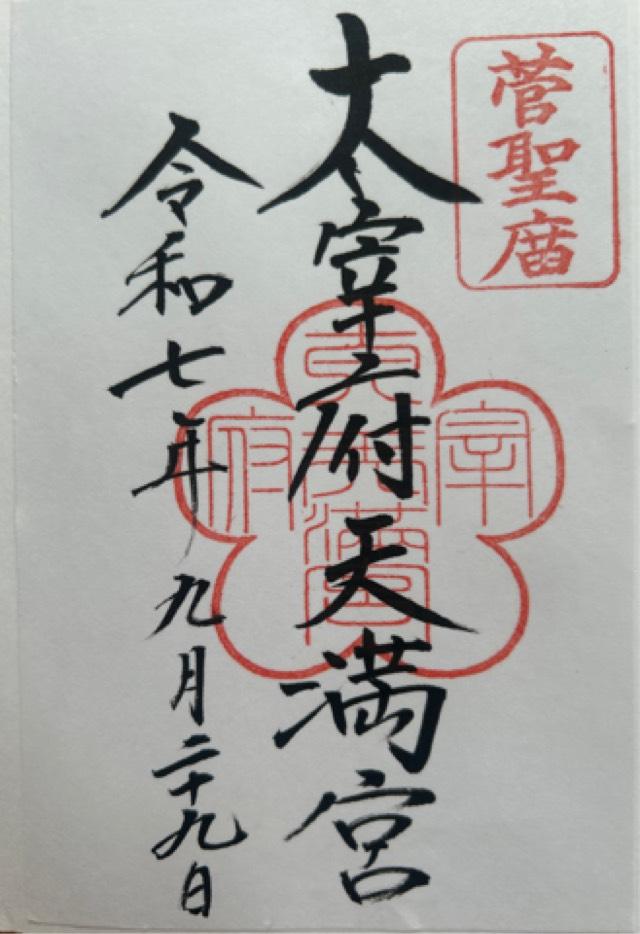 菅聖庿
太宰府天満宮
令和七年九月二十九日